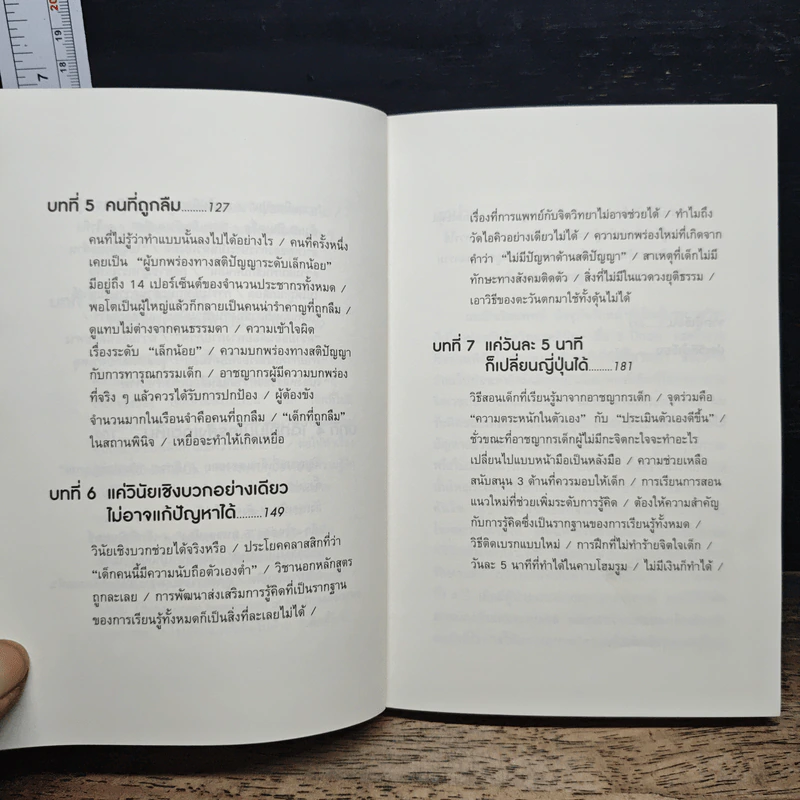 20
19
18
7
บทที่ 5 คนที่ถูกลืม.........127
คนที่ไม่รู้ว่าทำแบบนั้นลงไปได้อย่างไร / คนที่ครั้งหนึ่ง
เคยเป็น “ผู้บกพร่องทางสติปัญญาระดับเล็กน้อย”
มีอยู่ถึง 14 เปอร์เซ็นต์ของจำนวนประชากรทั้งหมด /
พอโตเป็นผู้ใหญ่แล้วก็กลายเป็นคนน่ารำคาญที่ถูกลืม /
ดูแทบไม่ต่างจากคนธรรมดา / ความเข้าใจผิด
เรื่องระดับ “เล็กน้อย” / ความบกพร่องทางสติปัญญา
กับการทารุณกรรมเด็ก / อาชญากรผู้มีความบกพร่อง
ที่จริง ๆ แล้วควรได้รับการปกป้อง / ผู้ต้องขัง
จำนวนมากในเรือนจำคือคนที่ถูกลืม / “เด็กที่ถูกลืม”
ในสถานพินิจ / เหยื่อจะทำให้เกิดเหยื่อ
บทที่ 6 แค่วินัยเชิงบวกอย่างเดียว
ไม่อาจแก้ปัญหาได้.........149
วินัยเชิงบวกช่วยได้จริงหรือ / ประโยคคลาสสิกที่ว่า
“เด็กคนนี้มีความนับถือตัวเองต่ำ” / วิชานอกหลักสูตร
ถูกละเลย / การพัฒนาส่งเสริมการรู้คิดที่เป็นรากฐาน
ของการเรียนรู้ทั้งหมดก็เป็นสิ่งที่ละเลยไม่ได้ /
เรื่องที่การแพทย์กับจิตวิทยาไม่อาจช่วยได้ / ทำไมถึง
วัดไอคิวอย่างเดียวไม่ได้ / ความบกพร่องใหม่ที่เกิดจาก
คำว่า “ไม่มีปัญหาด้านสติปัญญา” / สาเหตุที่เด็กไม่มี
ทักษะทางสังคมติดตัว / สิ่งที่ไม่มีในแวดวงยุติธรรม /
เอาวิธีของตะวันตกมาใช้ทั้งดุ้นไม่ได้
บทที่ 7 แค่วันละ 5 นาที
ก็เปลี่ยนญี่ปุ่นได้.........181
วิธีสอนเด็กที่เรียนรู้มาจากอาชญากรเด็ก / จุดร่วมคือ
“ความตระหนักในตัวเอง” กับ “ประเมินตัวเองดีขึ้น” /
ชั่วขณะที่อาชญากรเด็กผู้ไม่มีกะจิตกะใจจะทำอะไร
เปลี่ยนไปแบบหน้ามือเป็นหลังมือ / ความช่วยเหลือ
สนับสนุน 3 ด้านที่ควรมอบให้เด็ก / การเรียนการสอน
แนวใหม่ที่ช่วยเพิ่มระดับการรู้คิด / ต้องให้ความสำคัญ
กับการรู้คิดซึ่งเป็นรากฐานของการเรียนรู้ทั้งหมด /
วิธีติดเบรกแบบใหม่ / การฝึกที่ไม่ทำร้ายจิตใจเด็ก /
วันละ 5 นาทีที่ทำได้ในคาบโฮมรูม / ไม่มีเงินก็ทำได้ /